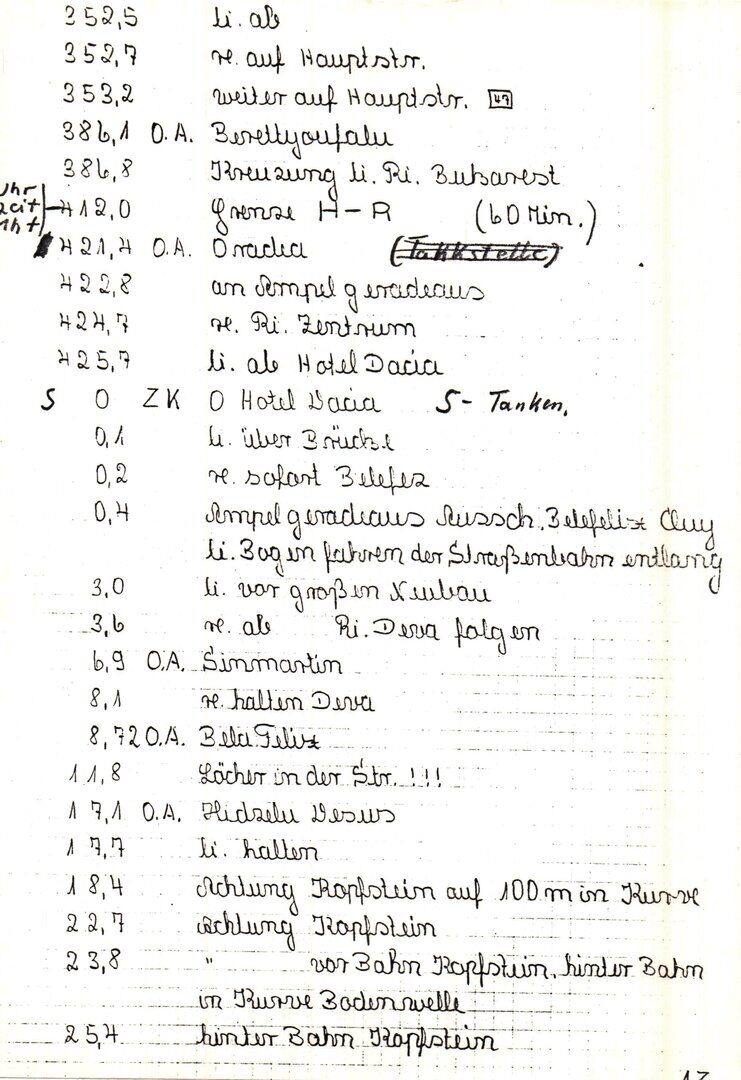 352,5 li. ab
352,7 re. auf Hauptstr.
353,2 weiter auf Hauptstr. 47
386,1 O.A. Berettyoufalu
386,8 Kreuzung li. Ri. Bukarest
Uhr
zeit
1h+
412,0 Grenze H-R (60 Min.)
421,4 O.A. Oradea (Takkstelle)
422,8 an Ampel geradeaus
424,7 re. Ri. Zentrum
425,7 li. ab Hotel Dacia
S 0 ZK 0 Hotel Dacia S- Tanken,
0,1 li. über Brücke
0,2 re. sofort Belefez
0,4 Ampel geradeaus Aussch. Belefelix Cluy
li. Bogen fahren der Straßenbahn entlang
3,0 li. vor großen Neubau
3,6 re. ab Ri. Deva folgen
6,9 O.A. Sinmartin
8,1 re. halten Deva
8,72 O.A. Bela Felix
11,8 Löcher in der Str. !!!
17,1 O.A. Hidselu Desus
17,7 li. halten
18,4 Achtung Kopfstein auf 100m in Kurve
22,7 Achtung Kopfstein
23,8 " vor Bahn Kopfstein, hinter Bahn
in Kurve Bodenwelle
25,4 hinter Bahn Kopfstein